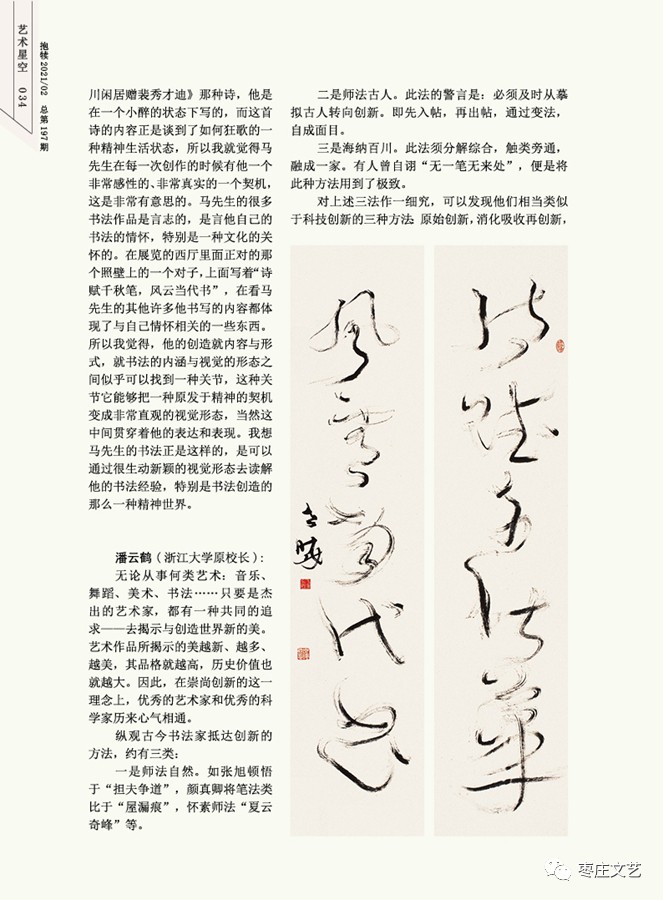 艺术星空 034
抱犊 2021/02 总第197期
川闲居赠裴秀才迪》那种诗，他是
在一个小醉的状态下写的，而这首
诗的内容正是谈到了如何狂歌的一
种精神生活状态，所以我就觉得马
先生在每一次创作的时候有他一个
非常感性的、非常真实的一个契机，
这是非常有意思的。马先生的很多
书法作品是言志的，是言他自己的
书法的情怀，特别是一种文化的关
怀的。在展览的西厅里面正对的那
个照壁上的一个对子，上面写着“诗
赋千秋笔，风云当代书”，在看马
先生的其他许多他书写的内容都体
现了与自己情怀相关的一些东西。
所以我觉得，他的创造就内容与形
式，就书法的内涵与视觉的形态之
间似乎可以找到一种关节，这种关
节它能够把一种原发于精神的契机
变成非常直观的视觉形态，当然这
中间贯穿着他的表达和表现。我想
马先生的书法正是这样的，是可以
通过很生动新颖的视觉形态去读解
他的书法经验，特别是书法创造的
那么一种精神世界。
潘云鹤（浙江大学原校长）：
无论从事何类艺术：音乐、
舞蹈、美术、书法……只要是杰
出的艺术家，都有一种共同的追
求——去揭示与创造世界新的美。
艺术作品所揭示的美越新、越多、
越美，其品格就越高，历史价值也
就越大。因此，在崇尚创新的这一
理念上，优秀的艺术家和优秀的科
学家历来心气相通。
纵观古今书法家抵达创新的
方法，约有三类：
一是师法自然。如张旭顿悟
于“担夫争道”，颜真卿将笔法类
比于“屋漏痕”，怀素师法“夏云
奇峰”等。
二是师法古人。此法的警言是：必须及时从摹
拟古人转向创新。即先入帖，再出帖，通过变法，
自成面目。
三是海纳百川。此法须分解综合，触类旁通，
融成一家。有人曾自诩“无一笔无来处”，便是将
此种方法用到了极致。
对上述三法作一细究，可以发现他们相当类似
于科技创新的三种方法：原始创新，消化吸收再创新，
风云当代书
枣庄文艺